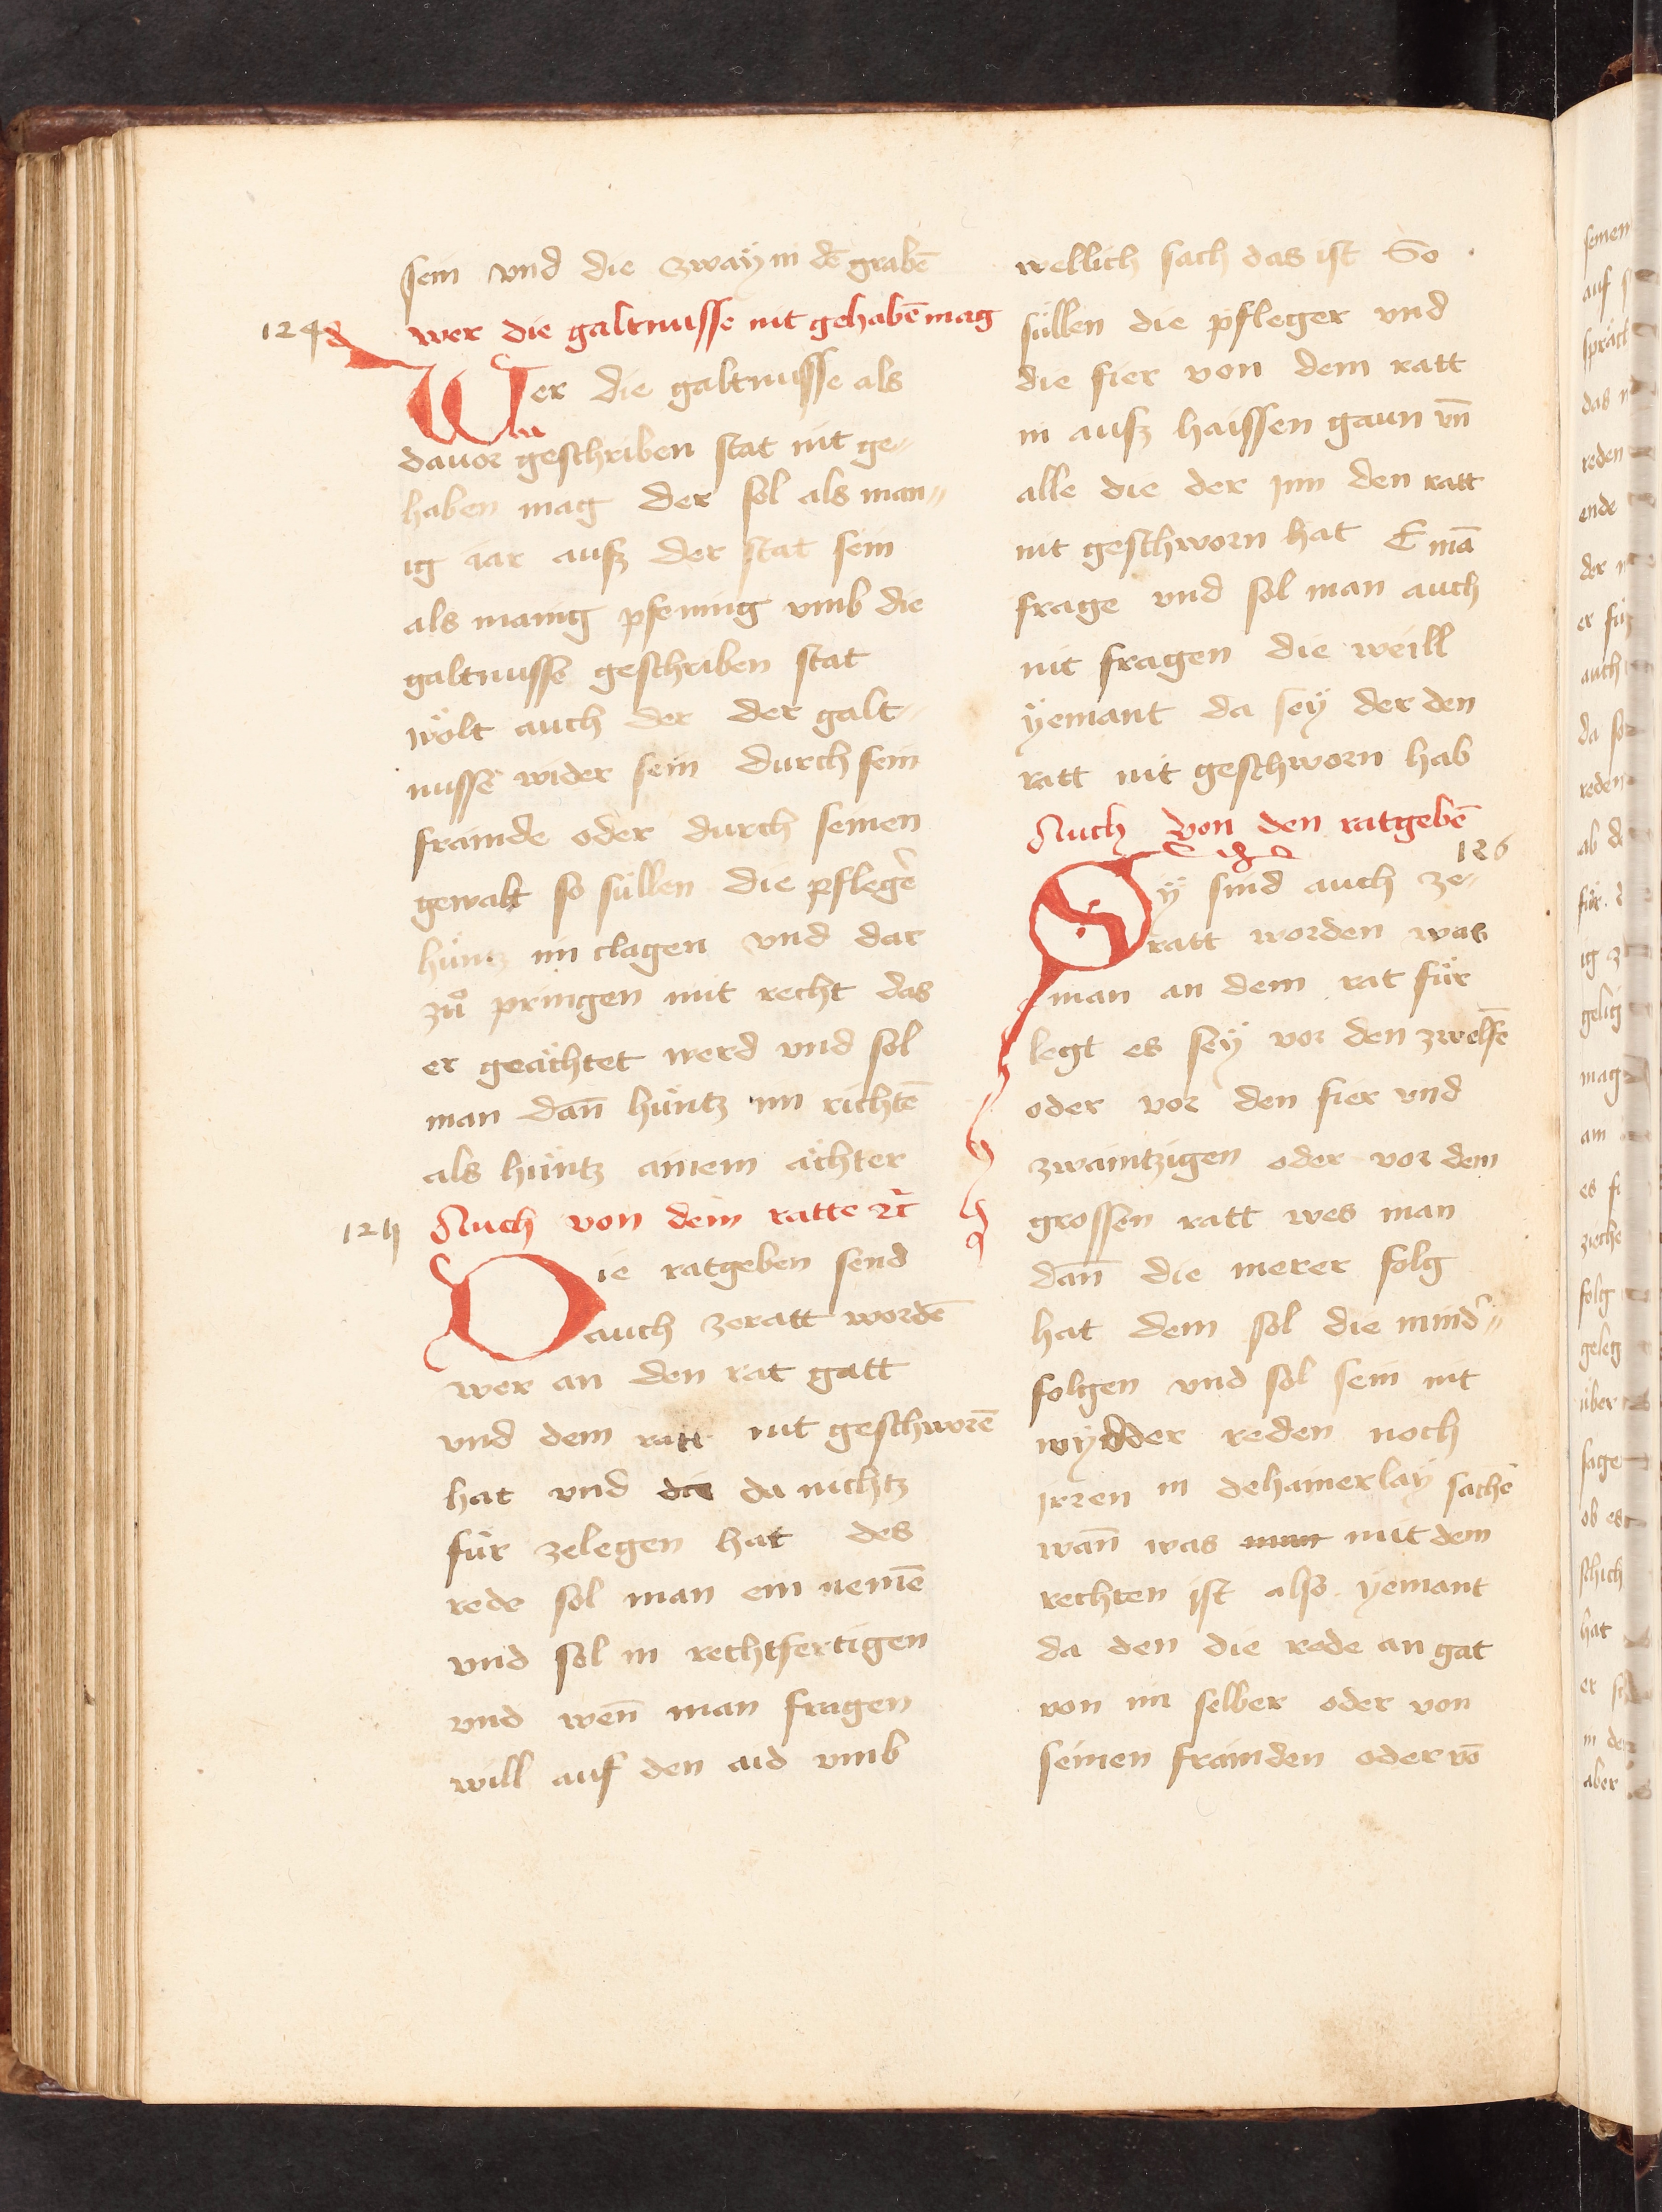 sein vnd die zwaÿ in dē grabē
124 wer die galtnusse nit gehabē mag
Wer die galtnusse als
dauor geschriben stat nit ge-
haben mag der sol als man-
ig iar ausz der stat sein
als manig pfening vmb die
galtnusse geschriben stat
wölt auch der der galt-
nusse wider sein durch sein
frainde oder durch seinen
gewalt so süllen die pflegē
hüntz im clagen vnd dar
zuͦ pringen mit recht das
er geächtet werd vnd sol
man dañ hüntz im richtē
als hüntz ainem ächter
125 Auch von dem ratte ⁊c̄
Die ratgeben send
auch zeratt wordē
wer an den rat gatt
vnd dem ratt nit geschworē
hat vnd die da nichtz
für zelegen hat des
rede sol man ein nemē
vnd sol in rechtfertigen
vnd weñ man fragen
will auf den aid vmb
wellich sach das ist So
süllen die pfleger vnd
die fier von dem ratt
in ausz haissen gaun vñ
alle die der jnn den ratt
nit geschworn hat E mā
frage vnd sol man auch
nit fragen die weill
ÿemant da seÿ der den
ratt nit geschworn hab
Auch von den ratgebē
126
Sÿ sind auch ze-
ratt worden was
man an dem rat für
legt es seÿ vor den zwelfē
oder vor den fier vnd
zwaintzigen oder vor dem
grossen ratt wes man
dañ die merer folg
hat dem sol die mind̄-
folgen vnd sol sein nit
wÿdder reden noch
jrren in dehainerlaÿ sachē
wañ was man mit dem
rechten ist also ÿemant
da den die rede an gat
von im selber oder von
seinen frainden oder vō